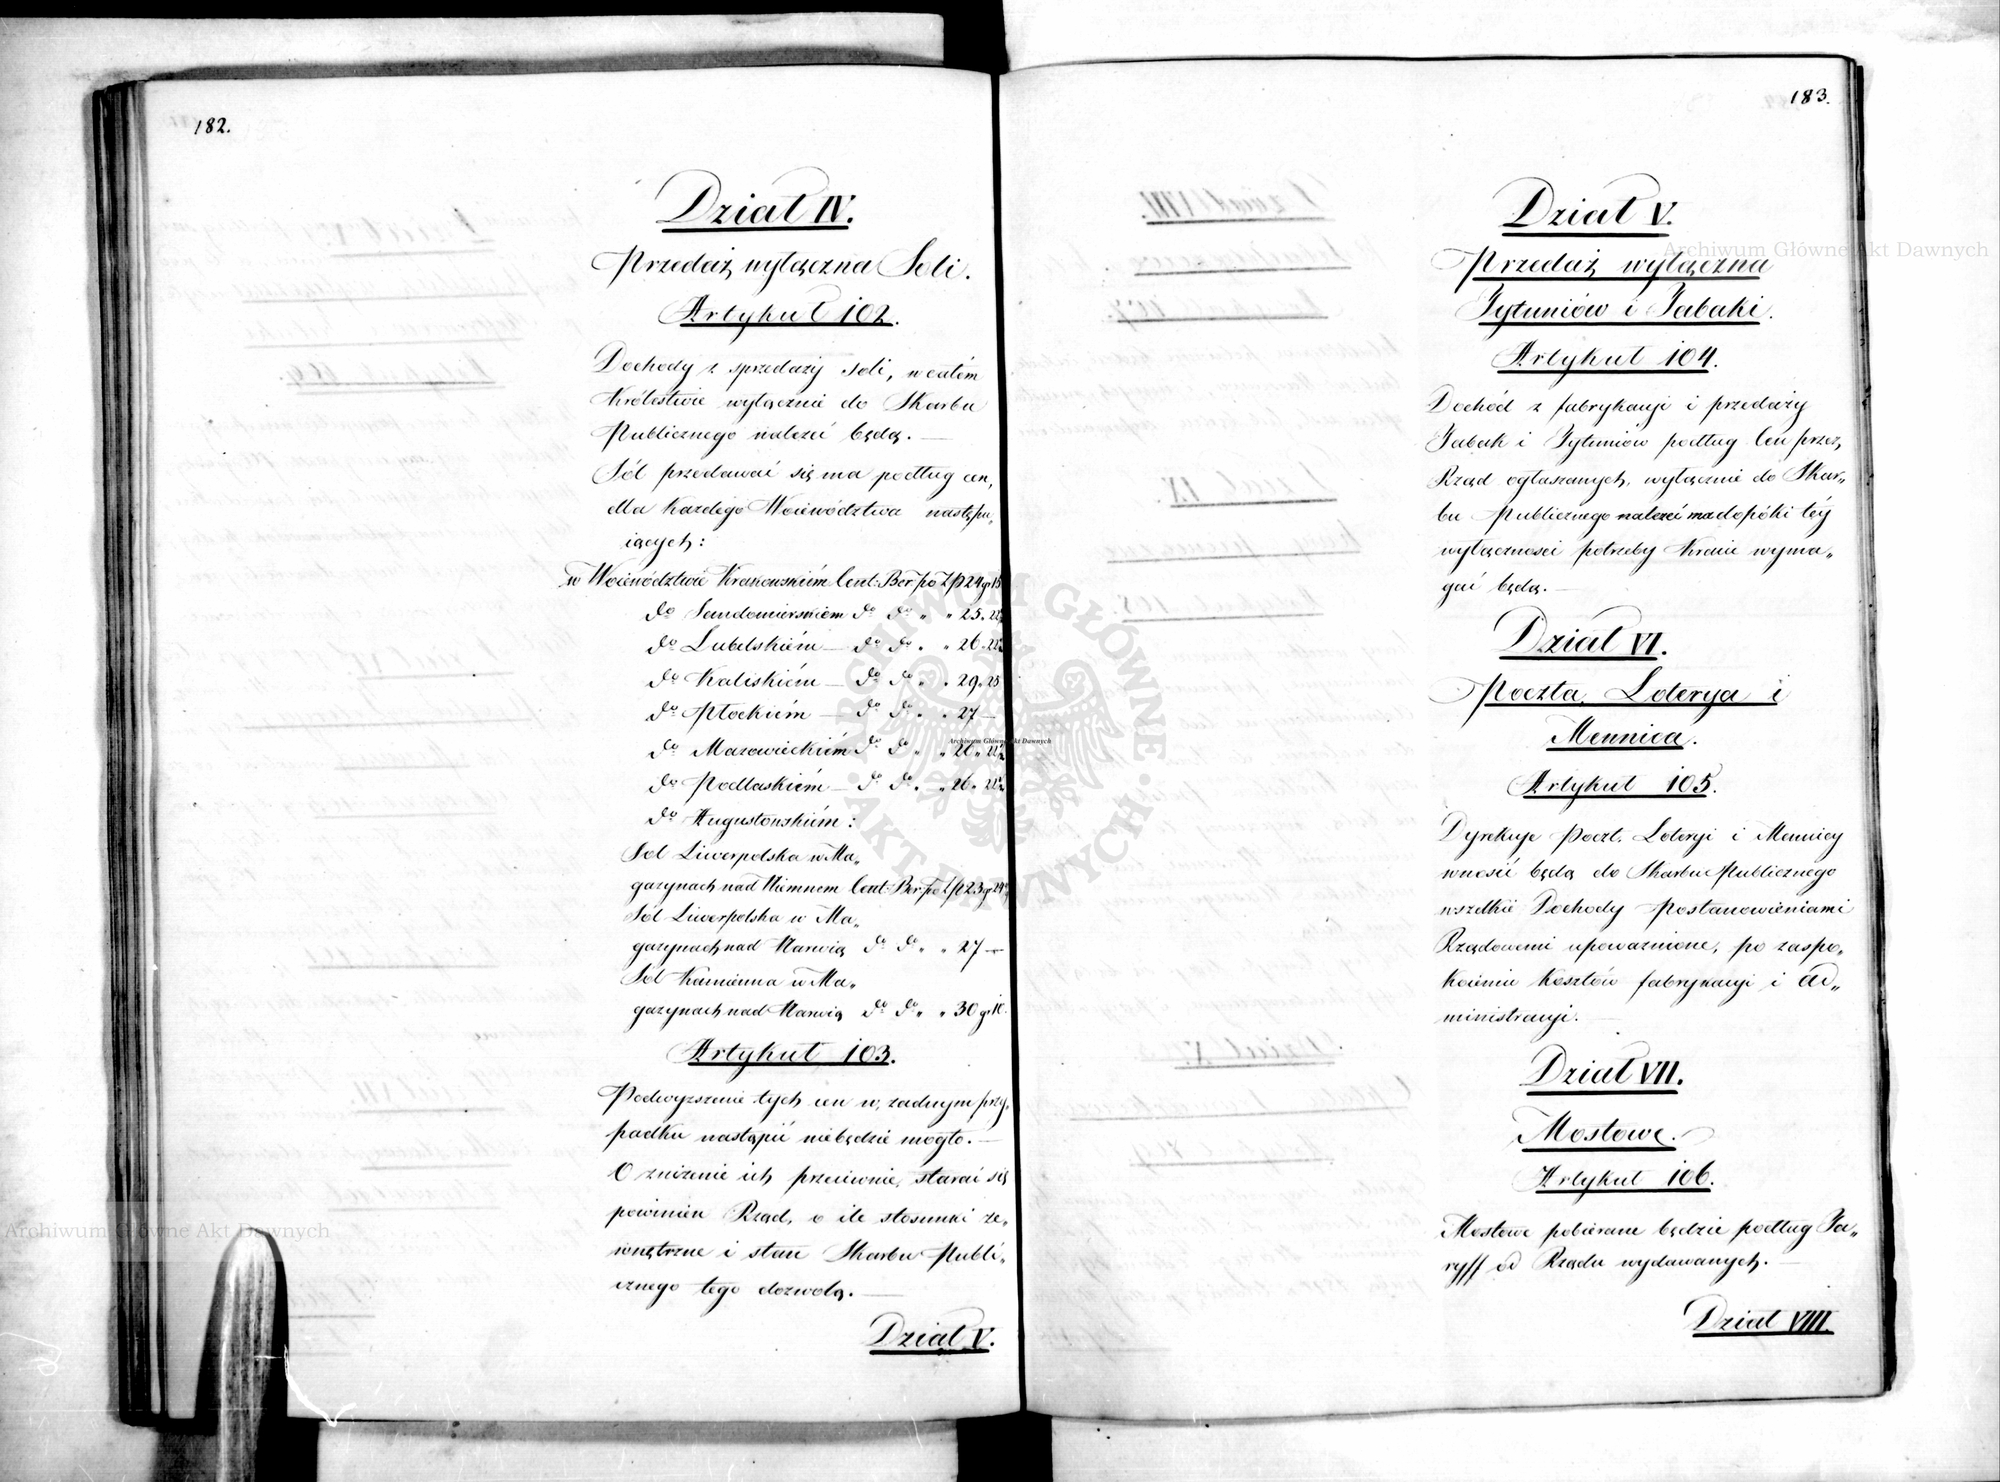 182.
Dział IV.
Przedaż wyłączna Soli.
Artykuł 102.
Dochody z sprzedaży soli, w całém
Królestwie wyłącznie do Skarbu
Publicznego należeć będą. —
Sól przedawać się ma podług cen,
dla każdego Województwa nastę„
iących:
w Województwie Krakowskiém Cent: Ber: po Zł 24 gr 15
do Sandomierskiem do do „ „ 25. 22
do Lubelskiém — do do „ „ 26. 22
do Kaliskiém — do do „ „ 29. 25
do Płockiém — do do „ „ 27 —
do Mazowieckiém do do „ „ 26 „ 22
do Podlaskiém — do do „ „ 26. 22
do Augustowskiém:
Sól Liwerpolska w Ma„
gazynach nad Niemnem Cent: Ber: po Zł 23 gr 24
Sól Liwerpolska w Ma„
gazynach nad Narwią do do „ „ 27 —
Sól Kamienna w Ma„
gazynach nad Narwią do do „ „ 30 gr 10.
Artykuł 103.
Podwyższenie tych cen w żadnym przy„
padku nastąpić niebędzie mogło. —
O zniżenie ich przeciwnie, starać się
powinien Rząd, o ile stosunki ze„
wnętrzne i stan Skarbu Publi„
cznego tego dozwolą. —
Dział V.
183.
Dział V.
Przedaż wyłączna
Tytuniów i Tabaki.
Artykuł 104.
Dochód z fabrykacyi i przedaży
Tabak i Tytuniów podług Cen przez
Rząd ogłaszanych, wyłącznie do Skar„
bu Publicznego należeć ma dopóki téy
wyłączności potrzeby Kraiu wyma„
gać będą. —
Dział VI.
Poczta, Loterya i
Mennica.
Artykuł 105.
Dyrekcye Poczt, Loteryi i Mennicy
wnosić będą do Skarbu Publicznego
wszelkie Dochody Postanowieniami
Rządowemi upoważnione, po zaspo„
koieniu kosztów fabrykacyi i Ad„
ministracyi. —
Dział VII.
Mostowe.
Artykuł 106.
Mostowe pobierane będzie podług Ta„
ryff od Rządu wydawanych. —
Dział VIII.
Archiwum Główne Akt Dawnych
Archiwum Główne Akt Dawnych
Archiwum Główne Akt Dawnych
ARCHIWUM GŁÓWNE AKT DAWNYCH